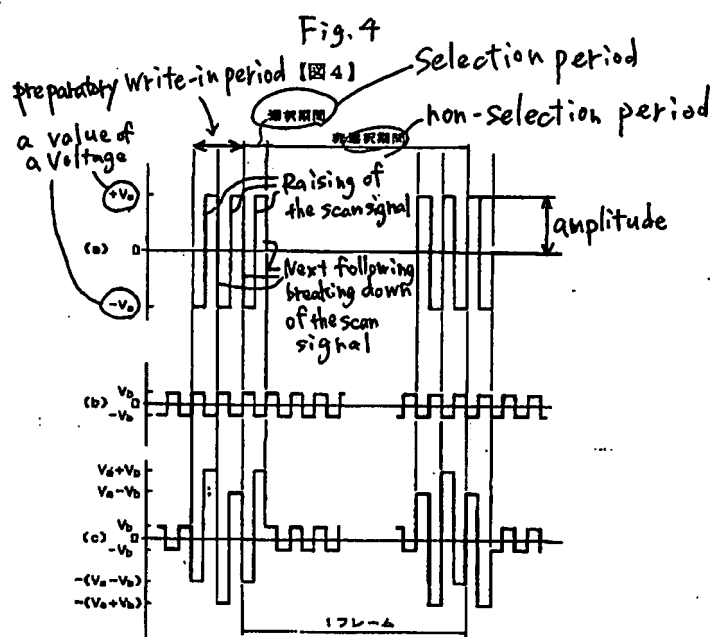 Fig. 4
preparatory write-in period
【図4】
Selection period
選択期間
non-selection period
非選択期間
a value of
a voltage
+Vₐ
Raising of
the scan signal
amplitude
(a) 0
Next following
breaking down
of the scan
signal
-Vₐ
Vb
(b) 0
-Vb
Vₐ+Vb
Vₐ-Vb
Vb
(c) 0
-Vb
-(Vₐ-Vb)
-(Vₐ+Vb)
1フレーム